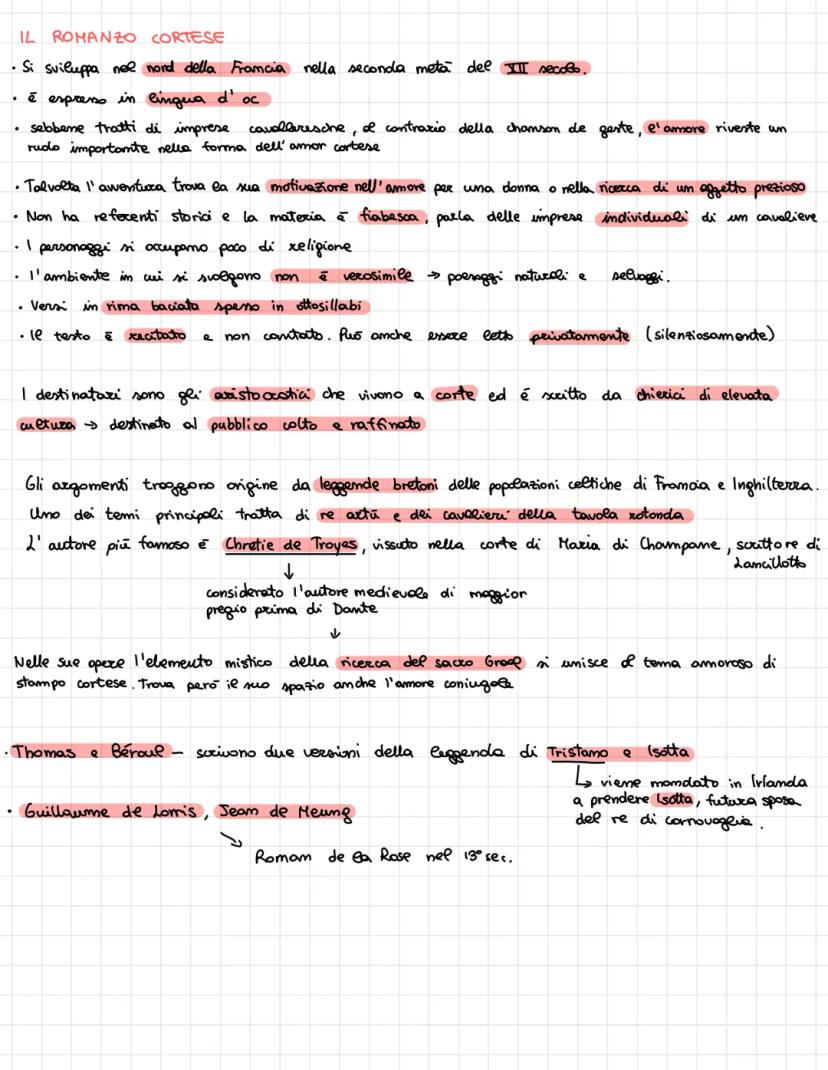 IL ROMANZO CORTESE
• Si sviluppa nel nord della Francia nella seconda metà del XII secolo.
• è espresso in lingua d'oc
• sebbene tratti di imprese cavalleresche, al contrario della chanson de geste, l'amore riveste un
ruolo importante nella forma dell'amor cortese
• Talvolta l'avventura trova la sua motivazione nell'amore per una donna o nella ricerca di un oggetto prezioso
• Non ha referenti storici e la materia è fiabesca, parla delle imprese individuali di un cavaliere
• I personaggi si occupano poco di religione
• l'ambiente in cui si svolgono non è verosimile → paesaggi naturali e selvaggi.
• Versi in rima baciata spesso in ottosillabi
• Il testo è recitato e non cantato. Può anche essere letto privatamente (silenziosamente)
I destinatari sono gli aristocratici che vivono a corte ed è scritto da chierici di elevata
cultura → destinato al pubblico colto e raffinato
Gli argomenti traggono origine da leggende bretoni delle popolazioni celtiche di Francia e Inghilterra.
Uno dei temi principali tratta di re artù e dei cavalieri della tavola rotonda
L'autore più famoso è Chretie de Troyes, vissuto nella corte di Maria di Champane, scrittore di
Lancillotto
↓
considerato l'autore medievale di maggior
pregio prima di Dante
↓
Nelle sue opere l'elemento mistico della ricerca del sacro Graal si unisce al tema amoroso di
stampo cortese. Trova però il suo spazio anche l'amore coniugale
• Thomas e Béroul – scrivono due versioni della leggenda di Tristano e Isotta
↳ viene mandato in Irlanda
a prendere Isotta, futura sposa
del re di cornovaglia.
• Guillaume de Lorris, Jean de Meung
↘
Roman de la Rose nel 13° sec.